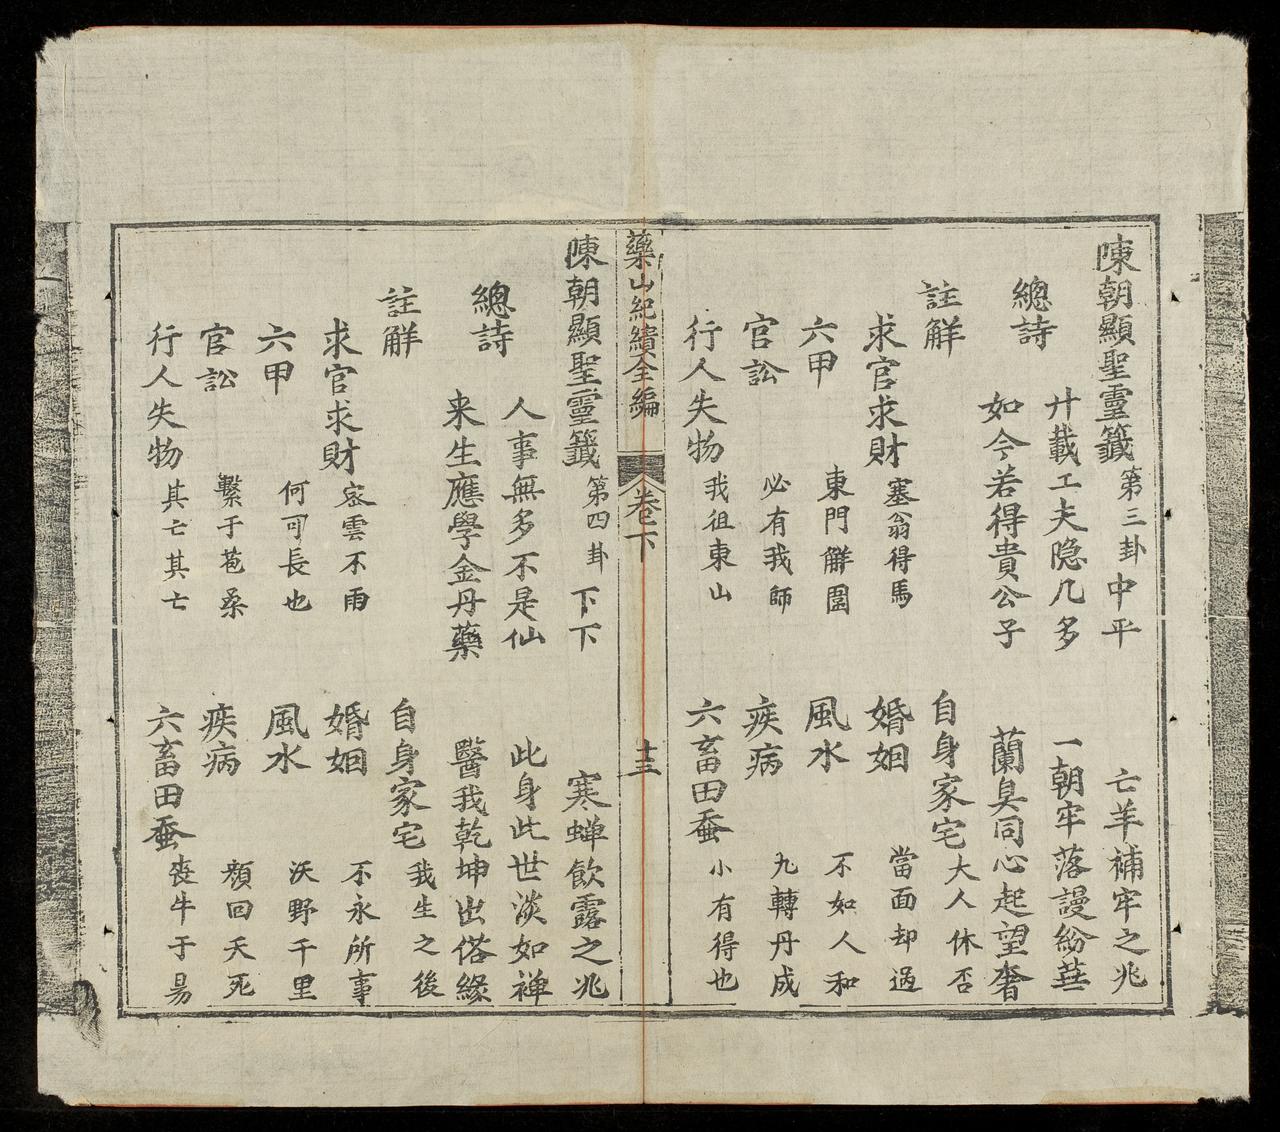 陳朝顯聖靈籤 第三卦 中平 亡羊補牢之兆
總詩
廾載工夫隐几多 一朝牢落謾紛葩
如今若得貴公子 蘭臭同心起望奢
註觧
自身家宅 大人休否
求官求財 塞翁得馬
婚姻 當面却過
六甲 東門觧圍
風水 不如人和
官訟 必有我師
疾病 九轉丹成
行人失物 我徂東山
六畜田蚕 小有得也
藥山紀績全編 卷下 十三
陳朝顯聖靈籤 第四卦 下下 寒蟬飲露之兆
總詩
人事無多不是仙 此身此世淡如禅
来生應學金丹藥 醫我乾坤出俗緣
註觧
自身家宅 我生之後
求官求財 密雲不雨
婚姻 不永所事
六甲 何可長也
風水 沃野千里
官訟 繫于苞桑
疾病 顏回夭死
行人失物 其亡其亡
六畜田蚕 喪牛于易